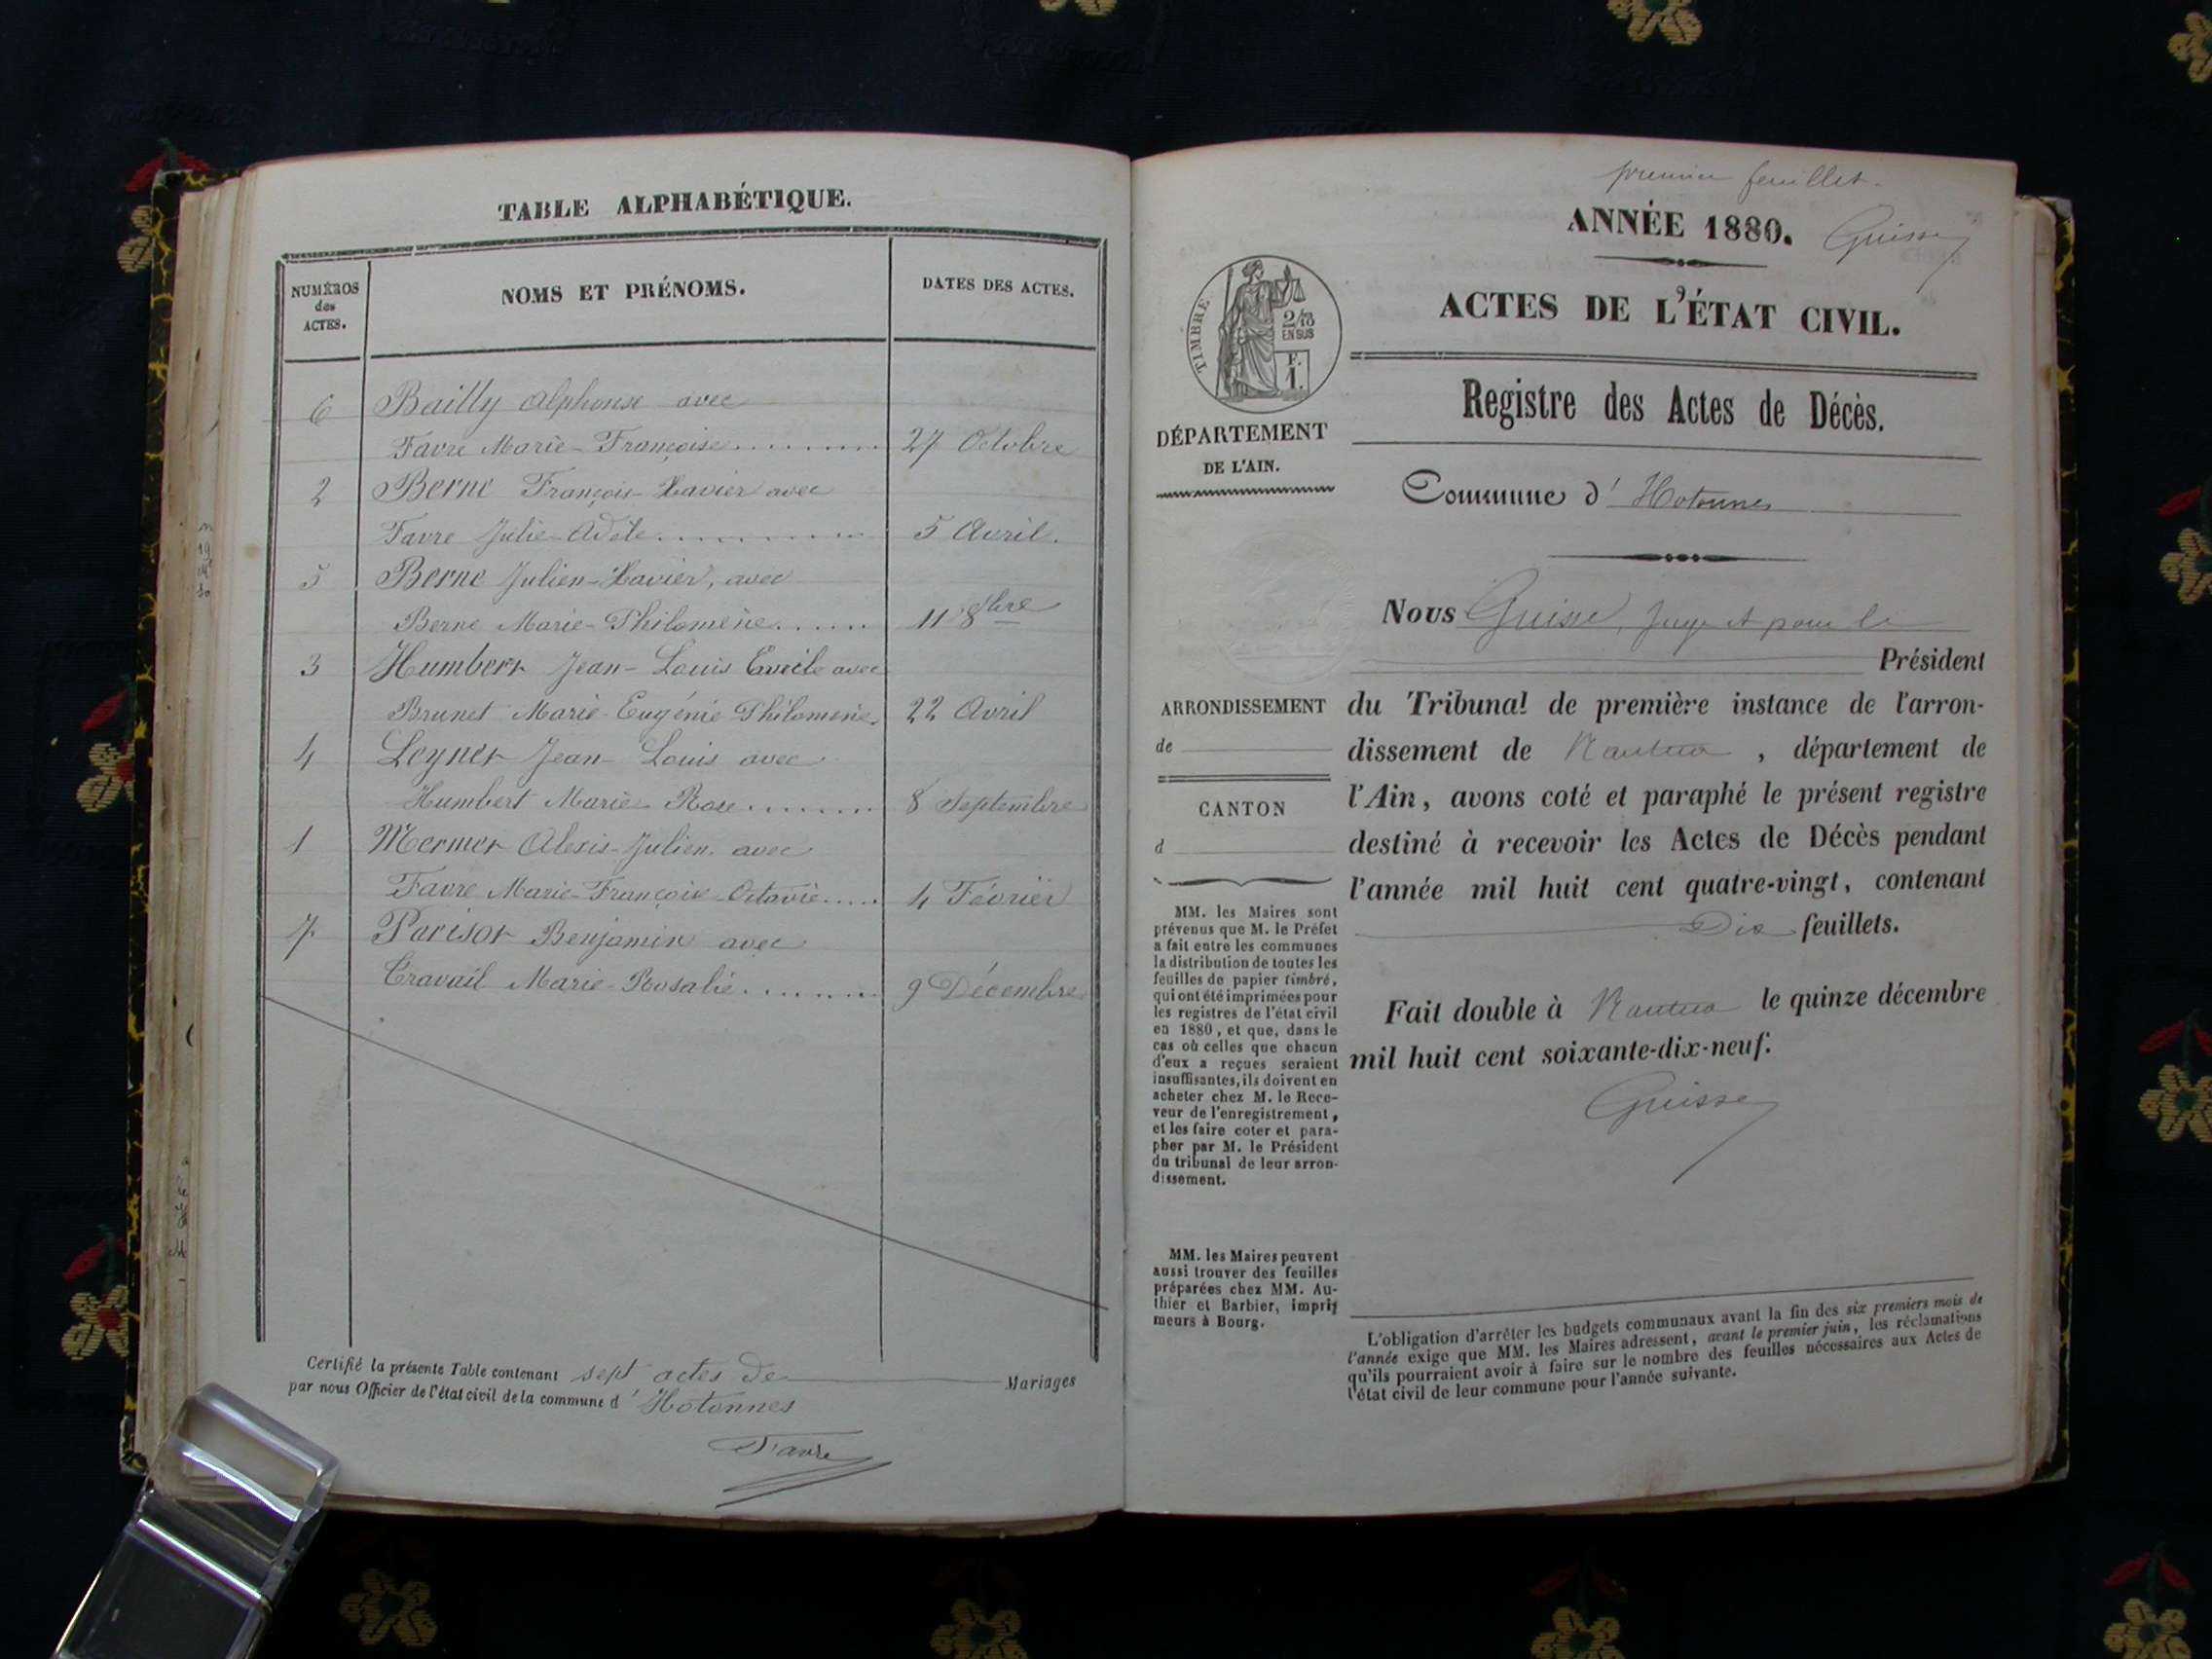 TABLE ALPHABÉTIQUE.
NUMÉROS
des
ACTES.
NOMS ET PRÉNOMS.
DATES DES ACTES.
6 Bailly Alphonse avec
Favre Marie-Françoise 27 Octobre
2 Berne François-Xavier avec
Favre Julie-Adèle 5 Avril.
5 Berne Julien-Xavier, avec
Berne Marie-Philomène 11 8bre
3 Humbert Jean-Louis avec
Brunet Marie-Eugénie Philomène 22 Avril
4 Leynet Jean-Louis avec
Humbert Marie-Rose 8 Septembre
1 Mermet Alexis-Julien avec
Favre Marie-Françoise-Octavie 4 Février
7 Parisot Benjamin avec
Travail Marie-Rosalie 9 Décembre
Certifié la présente Table contenant sept actes de Mariages
par nous Officier de l'état civil de la commune d'Hotonnes
Favre
premier feuillet.
ANNÉE 1880. Guisse
ACTES DE L'ÉTAT CIVIL.
TIMBRE
2/10
EN SUS
F.
1.
Registre des Actes de Décès.
DÉPARTEMENT
DE L'AIN.
Commune d'Hotonnes
Nous Guisse, Juge pour le
Président
du Tribunal de première instance de l'arron-
dissement de Nantua, département de
l'Ain, avons coté et paraphé le présent registre
destiné à recevoir les Actes de Décès pendant
l'année mil huit cent quatre-vingt, contenant
Dix feuillets.
Fait double à Nantua le quinze décembre
mil huit cent soixante-dix-neuf.
Guisse
ARRONDISSEMENT
de
CANTON
d
MM. les Maires sont
prévenus que M. le Préfet
a fait entre les communes
la distribution de toutes les
feuilles de papier timbré,
qui ont été imprimées pour
les registres de l'état civil
en 1880, et que, dans le
cas où celles que chacun
d'eux a reçues seraient
insuffisantes, ils doivent en
acheter chez M. le Rece-
veur de l'enregistrement,
et les faire coter et para-
pher par M. le Président
du tribunal de leur arron-
dissement.
MM. les Maires peuvent
aussi trouver des feuilles
préparées chez MM. Au-
thier et Barbier, impri-
meurs à Bourg.
L'obligation d'arrêter les budgets communaux avant la fin des six premiers mois de
l'année exige que MM. les Maires adressent, avant le premier juin, les réclamations
qu'ils pourraient avoir à faire sur le nombre des feuilles nécessaires aux Actes de
l'état civil de leur commune pour l'année suivante.